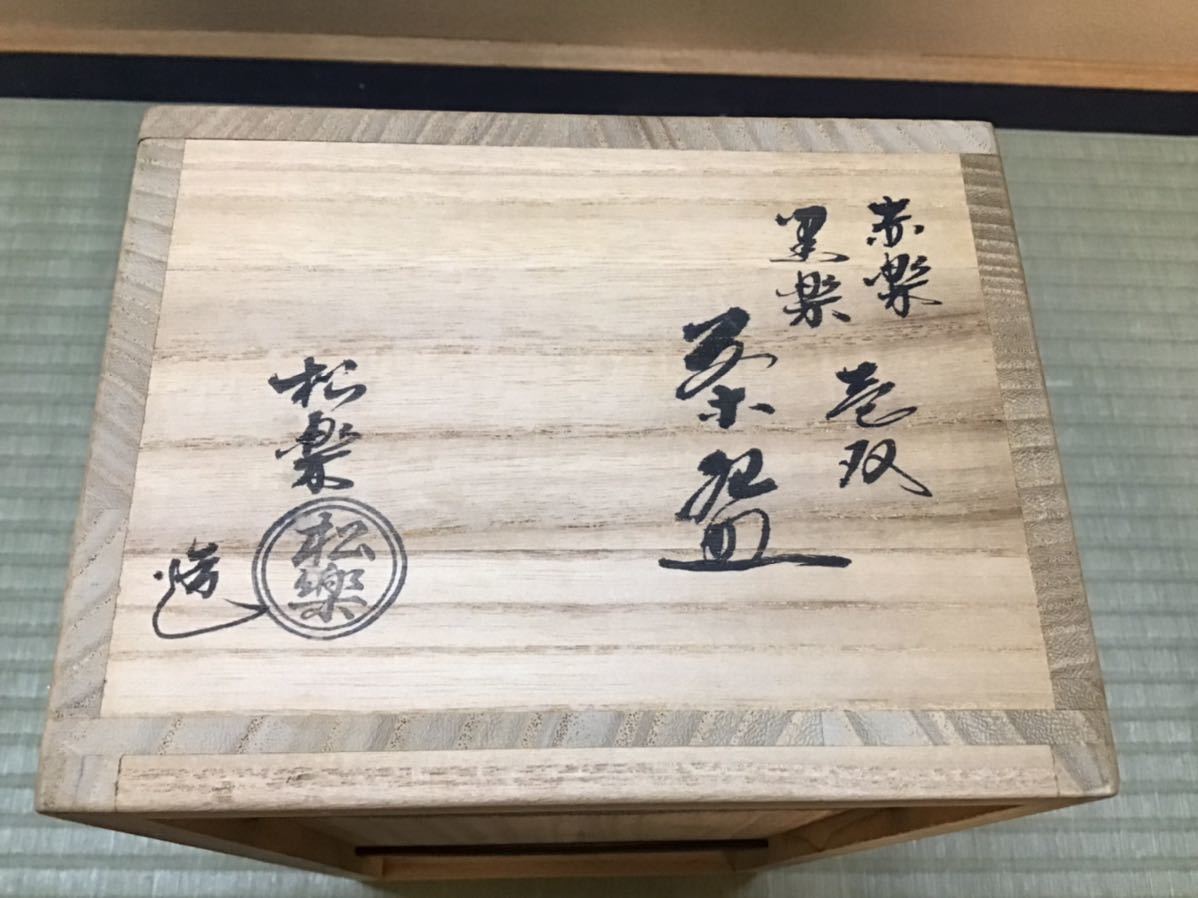 赤楽
黒楽
壱双
茶盌
松楽
松樂
造